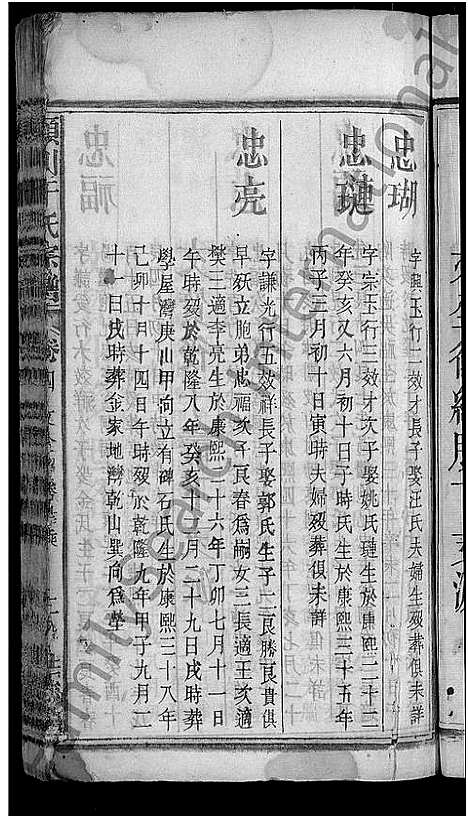 忠瑚
字興玉行二效才長子娶汪氏夫婦生歿葬俱未詳
忠璉
字宗玉行三效才次子娶姚氏璉生於康熙二十二
年癸亥又六月初十日子時氏生於康熙三十五年
丙子三月初十日寅時夫婦歿葬俱未詳
忠亮
字謙光行五效祥長子娶郭氏生子二良勝良貴俱
早殀立胞弟忠福次子良春爲嗣女三長適王次適
樊三適李亮生於康熙二十六年丁卯七月十一日
午時歿於乾隆八年癸亥十二月二十九日戌時葬
學屋灣庚山甲向立有碑石氏生於康熙三十八年
己卯十月十四日午時歿於乾隆九年甲子九月二
十一日戌時葬金家地灣乾山巽向爲塋
氏宗譜
FamilySearch International